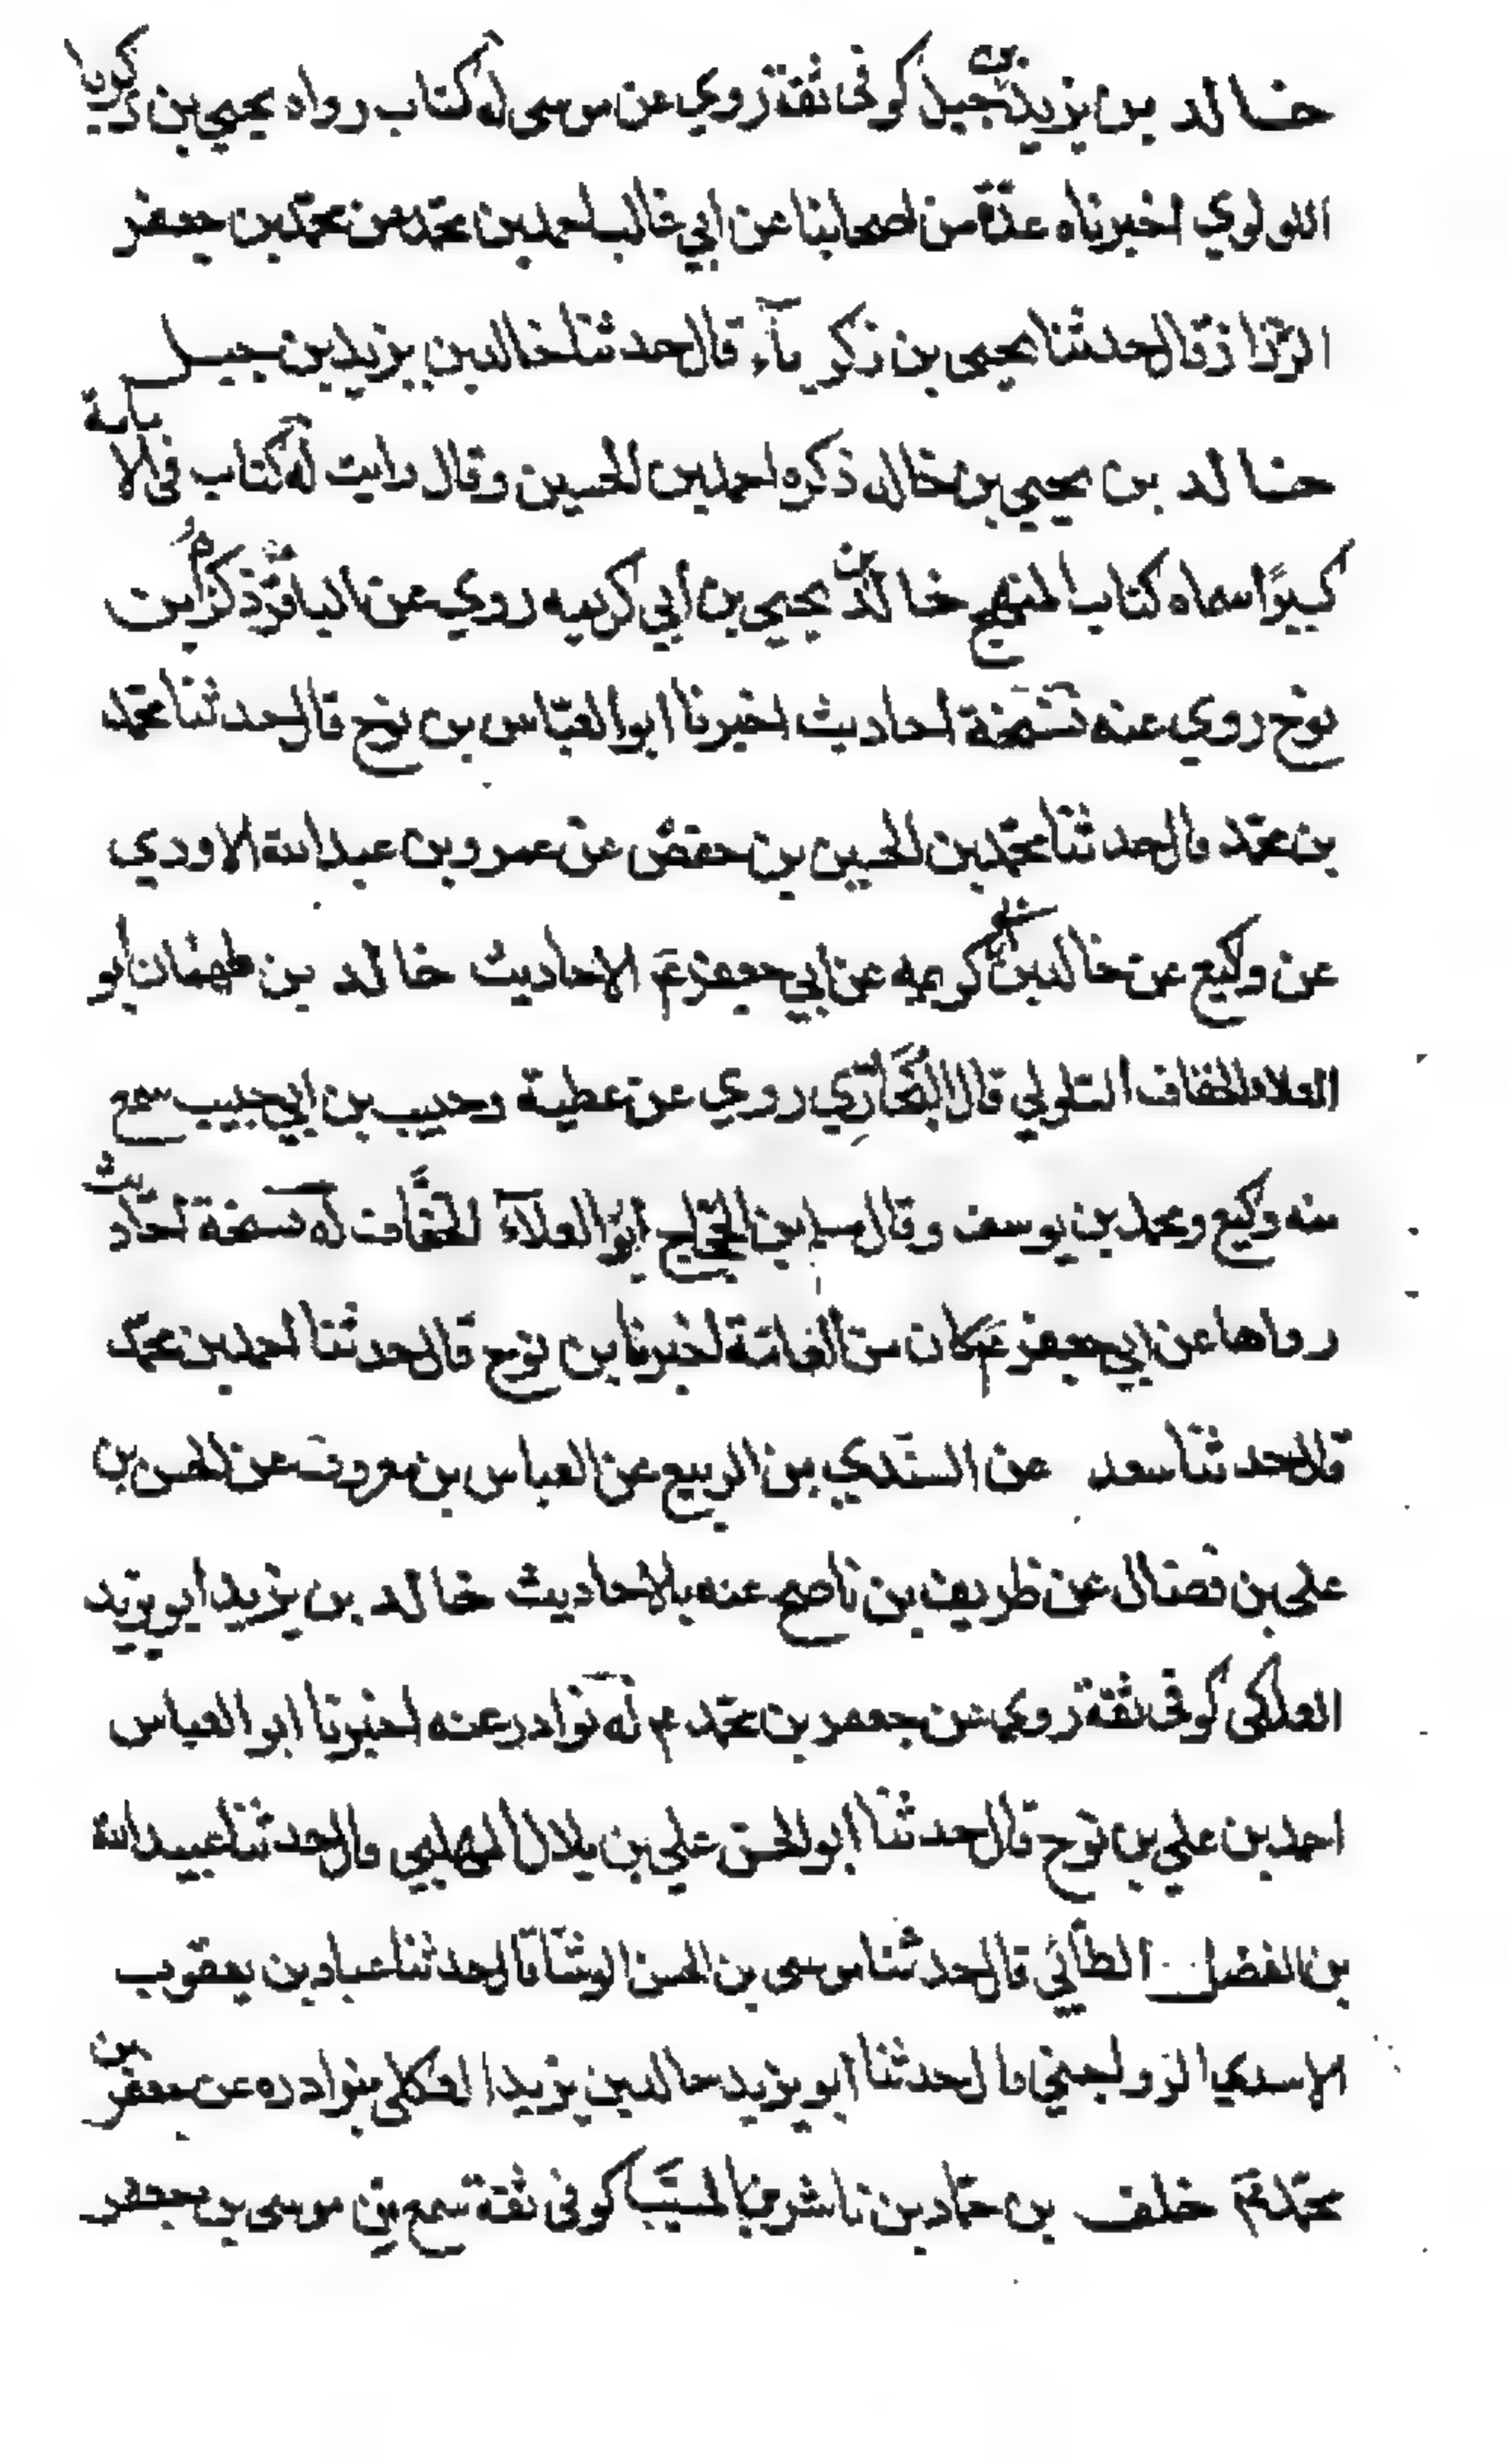 خالد بن يزيد بن جبل كوفى ثقة روي عن موسى له كتاب رواه يحيى بن زكريا
اللولوي اخبرناه عدة من اصحابنا عن ابي غالب احمد بن محمد عن محمد بن جعفر
الرزاز قال حدثنا يحيى بن زكرياء قال حدثنا خالد بن يزيد بن جبل
خالد بن يحيى بن خالد ذكره احمد بن الحسين وقال رايت له كتاب فى الامامة
كبيرا سماه كتاب المنهج خالد بن يحيى بن ابي كريمه روي عن الباقر ذكره ابن
نوح روي عنه نسخة احاديث اخبرنا ابو العباس بن نوح قال حدثنا محمد
بن محمد قال حدثنا محمد بن الحسين بن حفص عن عمرو بن عبدالله الاودي
عن وكيع عن خالد بن كريمه عن ابي جعفر ع م الاحاديث خالد بن طهمان ابو
العلاء الخفاف السلولي قال البخاري روي عن عطية وحبيب بن ابي حبيب سمع
منه وكيع ومحمد بن يوسف وقال مسلم بن الحجاج ابو العلاء الخفاف له نسخة احاديث
رواها عن ابي جعفر ع م كان من العامة اخبرنا بن نوح قال حدثنا احمد بن محمد
قال حدثنا سعد عن السندي بن الربيع عن العباس بن معروف عن الحسن بن
على بن فضال عن ظريف بن ناصح عنه بالاحاديث خالد بن يزيد ابو يزيد
العكلى كوفى ثقة روي عن جعفر بن محمد ع م له نوادر عنه اخبرنا ابو العباس
احمد بن علي بن نوح قال حدثنا ابو الحسن علي بن بلال المهلبي قال حدثنا عبيدالله
بن الفضل الطائي قال حدثنا موسى بن الحسن الوشا قال حدثنا عباد بن يعقوب
الاسدي الرواجني قال حدثنا ابو يزيد خالد بن يزيد العكلى بنوادره عن جعفر بن
محمد ع م خلف بن حماد بن ناشر بن المسيب كوفى ثقة سمع من موسى بن جعفر